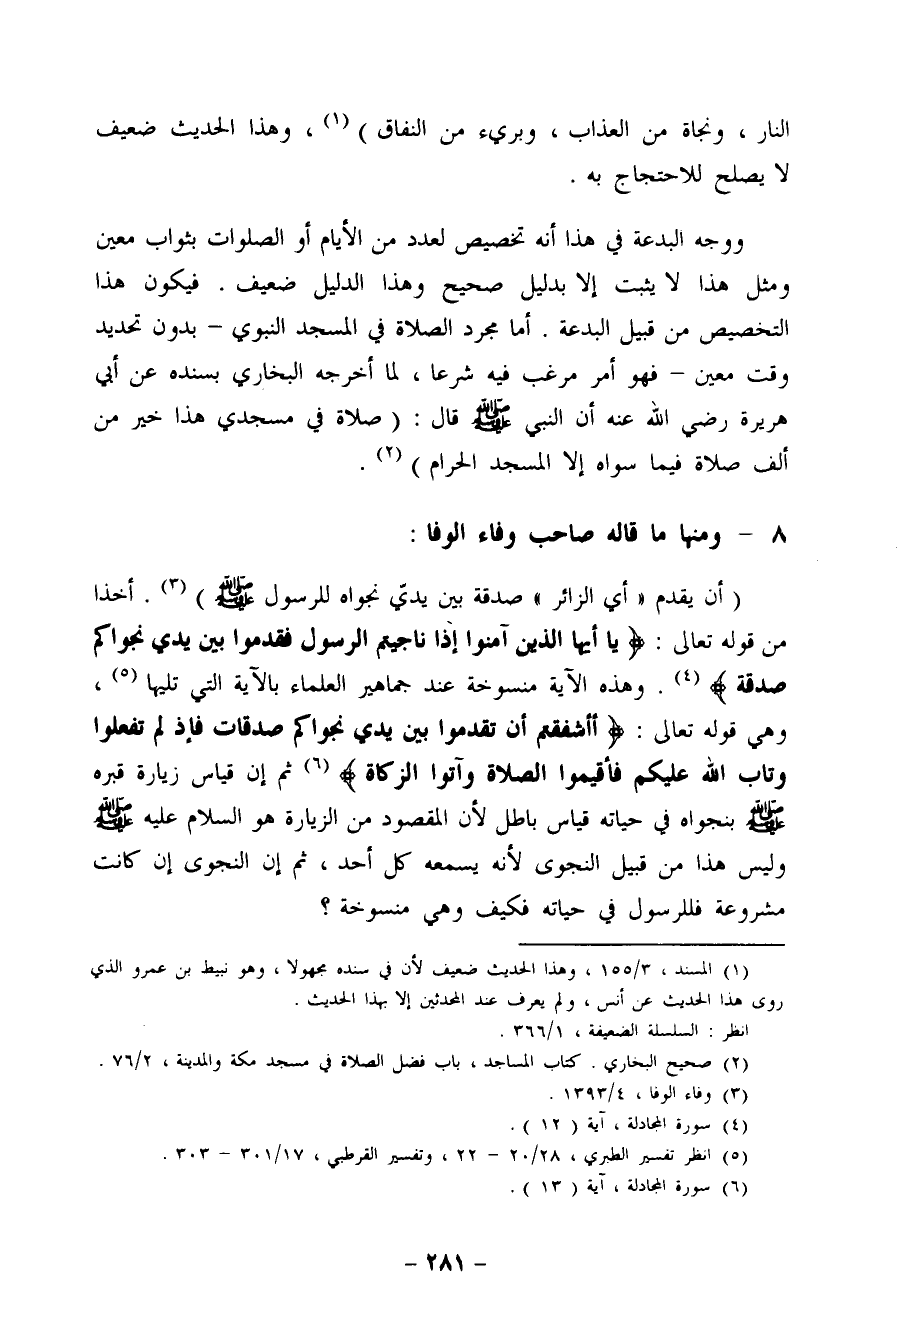 النار ، ونجاة من العذاب ، وبريء من النفاق ) (١) ، وهذا الحديث ضعيف
لا يصلح للاحتجاج به .
ووجه البدعة في هذا أنه تخصيص لعدد من الأيام أو الصلوات بثواب معين
ومثل هذا لا يثبت إلا بدليل صحيح وهذا الدليل ضعيف . فيكون هذا
التخصيص من قبيل البدعة . أما مجرد الصلاة في المسجد النبوي – بدون تحديد
وقت معين – فهو أمر مرغب فيه شرعا ، لما أخرجه البخاري بسنده عن أبي
هريرة رضي الله عنه أن النبي ﷺ قال : ( صلاة في مسجدي هذا خير من
ألف صلاة فيما سواه إلا المسجد الحرام ) (٢) .
٨ – ومنها ما قاله صاحب وفاء الوفا :
( أن يقدم « أي الزائر » صدقة بين يديّ نجواه للرسول ﷺ ) (٣) . أخذا
من قوله تعالى : ﴿ يا أيها الذين آمنوا إذا ناجيتم الرسول فقدموا بين يدي نجواكم
صدقة ﴾ (٤) . وهذه الآية منسوخة عند جماهير العلماء بالآية التي تليها (٥) ،
وهي قوله تعالى : ﴿ أأشفقتم أن تقدموا بين يدي نجواكم صدقات فإذ لم تفعلوا
وتاب الله عليكم فأقيموا الصلاة وآتوا الزكاة ﴾ (٦) ثم إن قياس زيارة قبره
ﷺ بنجواه في حياته قياس باطل لأن المقصود من الزيارة هو السلام عليه ﷺ
وليس هذا من قبيل النجوى لأنه يسمعه كل أحد ، ثم إن النجوى إن كانت
مشروعة فللرسول في حياته فكيف وهي منسوخة ؟
(١) المسند ، ١٥٥/٣ ، وهذا الحديث ضعيف لأن في سنده مجهولا ، وهو نبيط بن عمرو الذي
روى هذا الحديث عن أنس ، ولم يعرف عند المحدثين إلا بهذا الحديث .
انظر : السلسلة الضعيفة ، ٣٦٦/١ .
(٢) صحيح البخاري . كتاب المساجد ، باب فضل الصلاة في مسجد مكة والمدينة ، ٧٦/٢ .
(٣) وفاء الوفا ، ١٣٩٣/٤ .
(٤) سورة المجادلة ، آية ( ١٢ ) .
(٥) انظر تفسير الطبري ، ٢٠/٢٨ – ٢٢ ، وتفسير القرطبي ، ٣٠١/١٧ – ٣٠٣ .
(٦) سورة المجادلة ، آية ( ١٣ ) .
- ٢٨١ -